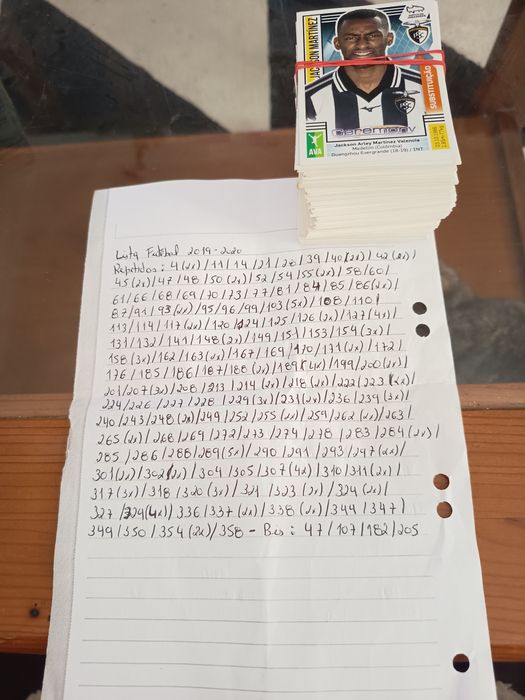 JACKSON MARTÍNEZ
SUBSTITUIÇÃO
Ceremony
AVA
Jackson Arley Martínez Valencia
Medellín (Colômbia)
Guangzhou Evergrande (18-19) / INT.
Lista Futebol 2019-2020
Repetidos: 4(2x)/11/14/21/28/39/40(2x)/42(2x)/
45(2x)/47/48/50(2x)/52/54/55(2x)/58/60/
61/66/68/69/70/73/77/81/84/85/86(2x)/
87/91/93(2x)/95/96/99/103(5x)/108/110/
113/114/117(2x)/120/124/125/126(2x)/127(4x)/
131/132/141/148(2x)/149/151/153/154(3x)/
158(3x)/162/163(2x)/167/169/170/171(2x)/172/
176/185/186/187/188(2x)/189(4x)/199/200(2x)/
201/207(3x)/208/213/214(2x)/218(2x)/222/223(4x)/
224/226/227/228/229(3x)/231(2x)/236/239(3x)/
240/243/248(2x)/249/252/255(2x)/259/262(2x)/263/
265(2x)/268/269/272/273/274/278/283/284(2x)/
285/286/288/289(5x)/290/291/293/297(2x)/
301(2x)/302(2x)/304/305/307(4x)/310/311(2x)/
317(3x)/318/320(3x)/321/323(2x)/324(2x)/
327/329(4x)/336/337(2x)/338(2x)/344/347/
349/350/354(2x)/358 - Bis: 47/107/182/205